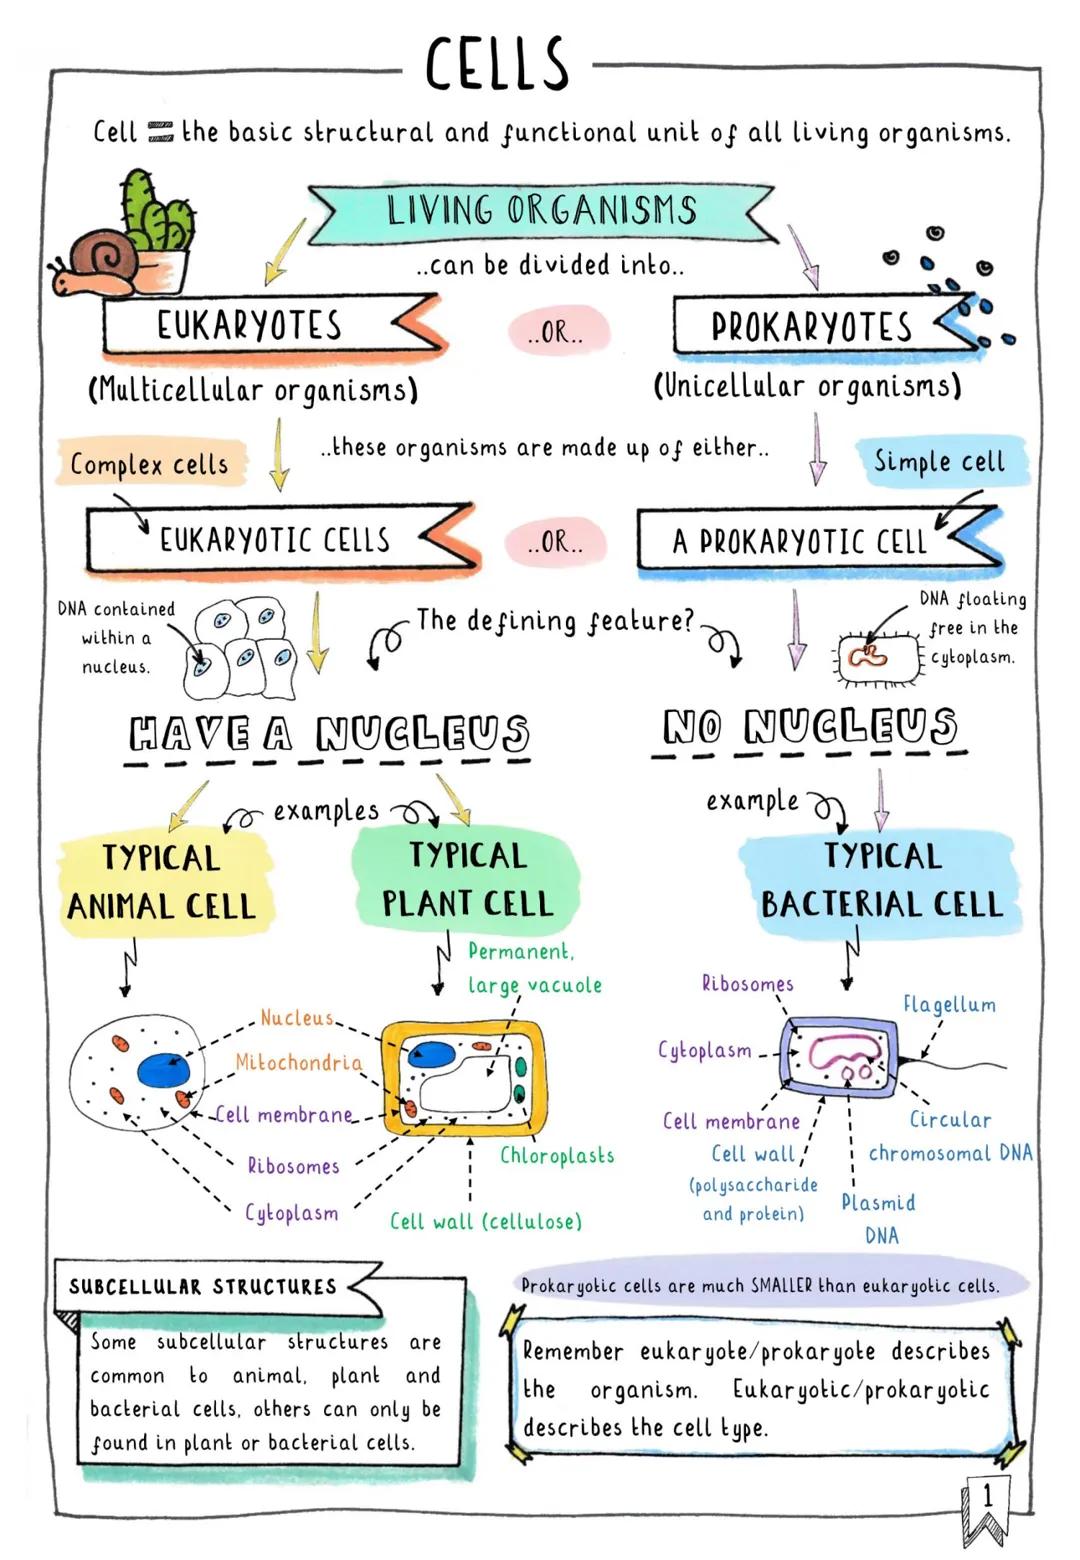 CELLS
Cell = the basic structural and functional unit of all living organisms.
LIVING ORGANISMS
..can be divided into..
EUKARYOTES
..OR..
PROKARYOTES
(Multicellular organisms)
(Unicellular organisms)
..these organisms are made up of either..
Complex cells
Simple cell
EUKARYOTIC CELLS
..OR..
A PROKARYOTIC CELL
DNA contained
within a
nucleus.
The defining feature?
DNA floating
free in the
cytoplasm.
HAVE A NUCLEUS
NO NUCLEUS
examples
example
TYPICAL
ANIMAL CELL
TYPICAL
PLANT CELL
TYPICAL
BACTERIAL CELL
Permanent,
large vacuole
Nucleus
Mitochondria
Cell membrane
Ribosomes
Cytoplasm
Chloroplasts
Cell wall (cellulose)
Ribosomes
Flagellum
Cytoplasm
Cell membrane
Cell wall
(polysaccharide
and protein)
Circular
chromosomal DNA
Plasmid
DNA
SUBCELLULAR STRUCTURES
Some subcellular structures are
common to animal, plant and
bacterial cells, others can only be
found in plant or bacterial cells.
Prokaryotic cells are much SMALLER than eukaryotic cells.
Remember eukaryote/prokaryote describes
the organism. Eukaryotic/prokaryotic
describes the cell type.
1